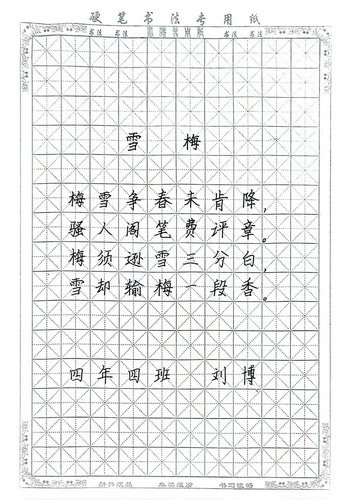 硬笔书法专用纸
书法 书法 书法 书法
雪 梅
梅雪争春未肯降，
骚人阁笔费评章。
梅须逊雪三分白，
雪却输梅一段香。
四年四班 刘博